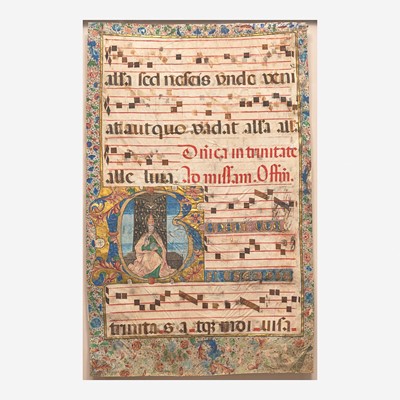 alla sed nescis unde veni
at aut quo vadat alla all
Dnica in trinitate
alle luia. Ad missam. Offm.
B
trinita s a tqz indi uisa